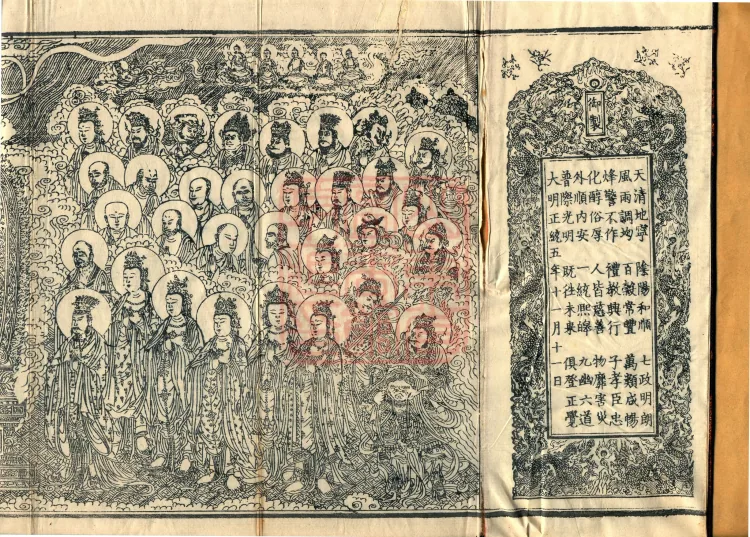 御製
天清地寧 陰陽和順 七政明朗
風雨調均 百穀常豐 萬類咸暢
烽警不作 禮教興行 子孝臣忠
化醇俗厚 人皆慈善 物靡害灾
外順內安 一統熙皞 九幽六道
普際光明 既往未來 俱登正覺
大明正統五年十一月十一日